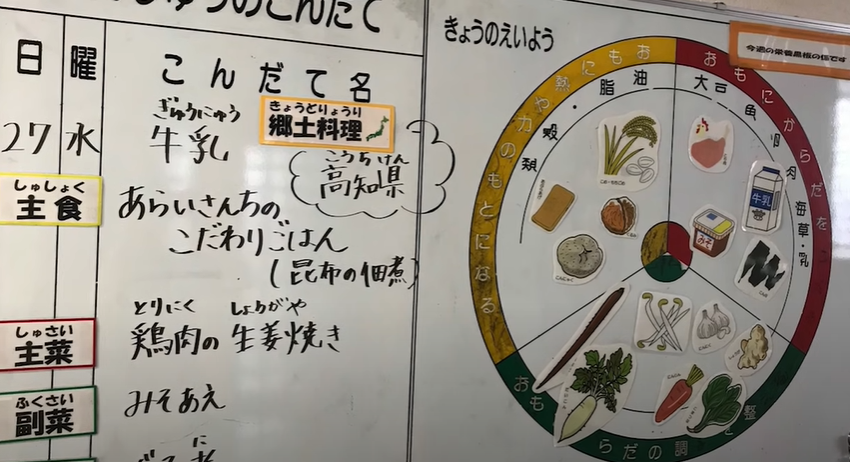 ゅうのこんだて
日 曜 こんだて名
27 水
ぎゅうにゅう
牛乳
きょうどりょうり
郷土料理
こうちけん
高知県
しゅしょく
主食
あらいさんちの
こだわりごはん
(昆布の佃煮)
しゅさい
主菜
とりにく しょうがや
鶏肉の生姜焼き
ふくさい
副菜
みそあえ
きょうのえいよう
おもに熱や力のもとになる
おもにからだを
おも
らだの調
整
穀類・油脂
大豆・魚・肉
海草・乳
牛乳
みそ